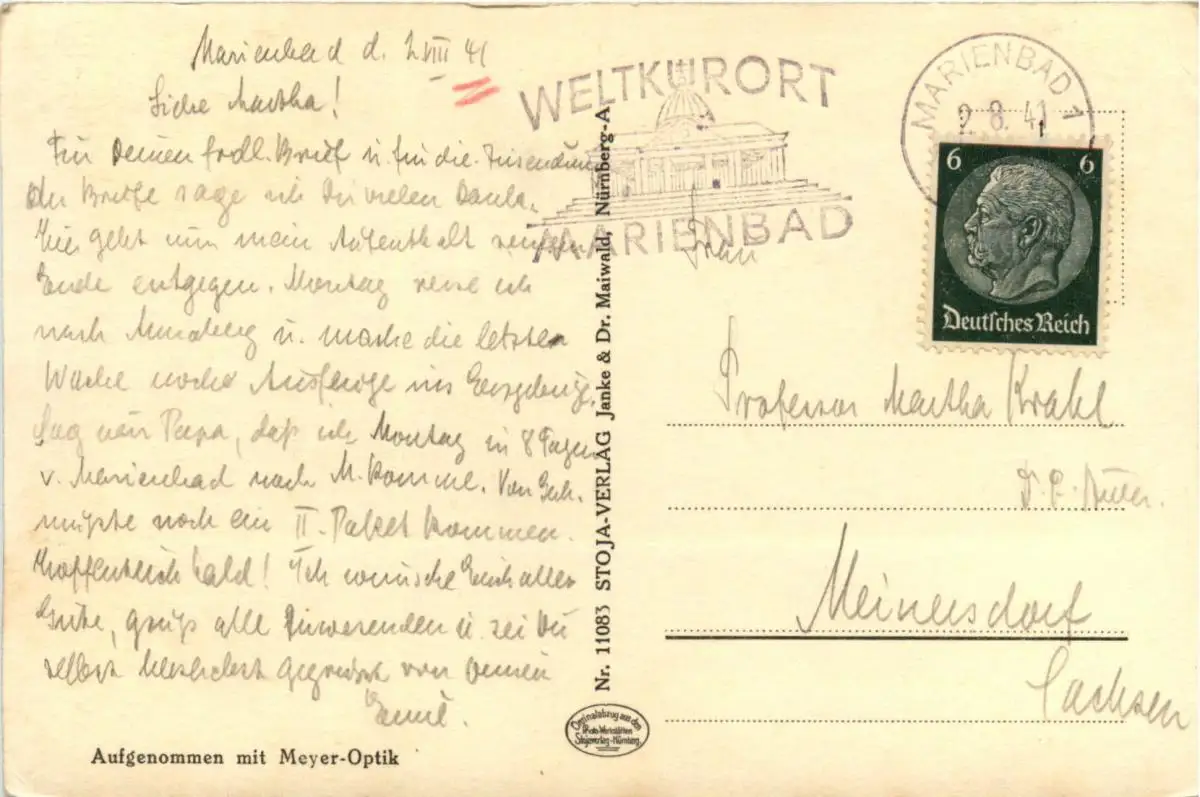 Marienbad d. 2.VIII 41
Liebe Martha!
Für Deinen frdl. Brief u. für die Zusendung
der Briefe sage ich Dir vielen Dank.
Hier geht nun mein Aufenthalt seinem
Ende entgegen. Montag reise ich
nach Annaberg u. mache die letzte
Woche noch Ausflüge ins Erzgebirg.
Sag nur Papa, daß ich Montag in 8 Tagen
v. Marienbad nach M. komme. Von
müßte noch ein II. Paket kommen.
Hoffentlich bald! Ich wünsche Euch alles
Gute, grüß alle Anwesenden u. sei Du
selbst herzlichst gegrüßt von Deinem
Emil.
Aufgenommen mit Meyer-Optik
Nr. 11083 STOJA-VERLAG Janke & Dr. Maiwald, Nürnberg-A
Originalabzug aus den
Photo-Werkstätten
Stojaverlag-Nürnberg
WELTKURORT
MARIENBAD
MARIENBAD 1
2. 8. 41
6 6
Deutsches Reich
Frau
Professor Martha Krahl
Meinersdorf
Sachsen